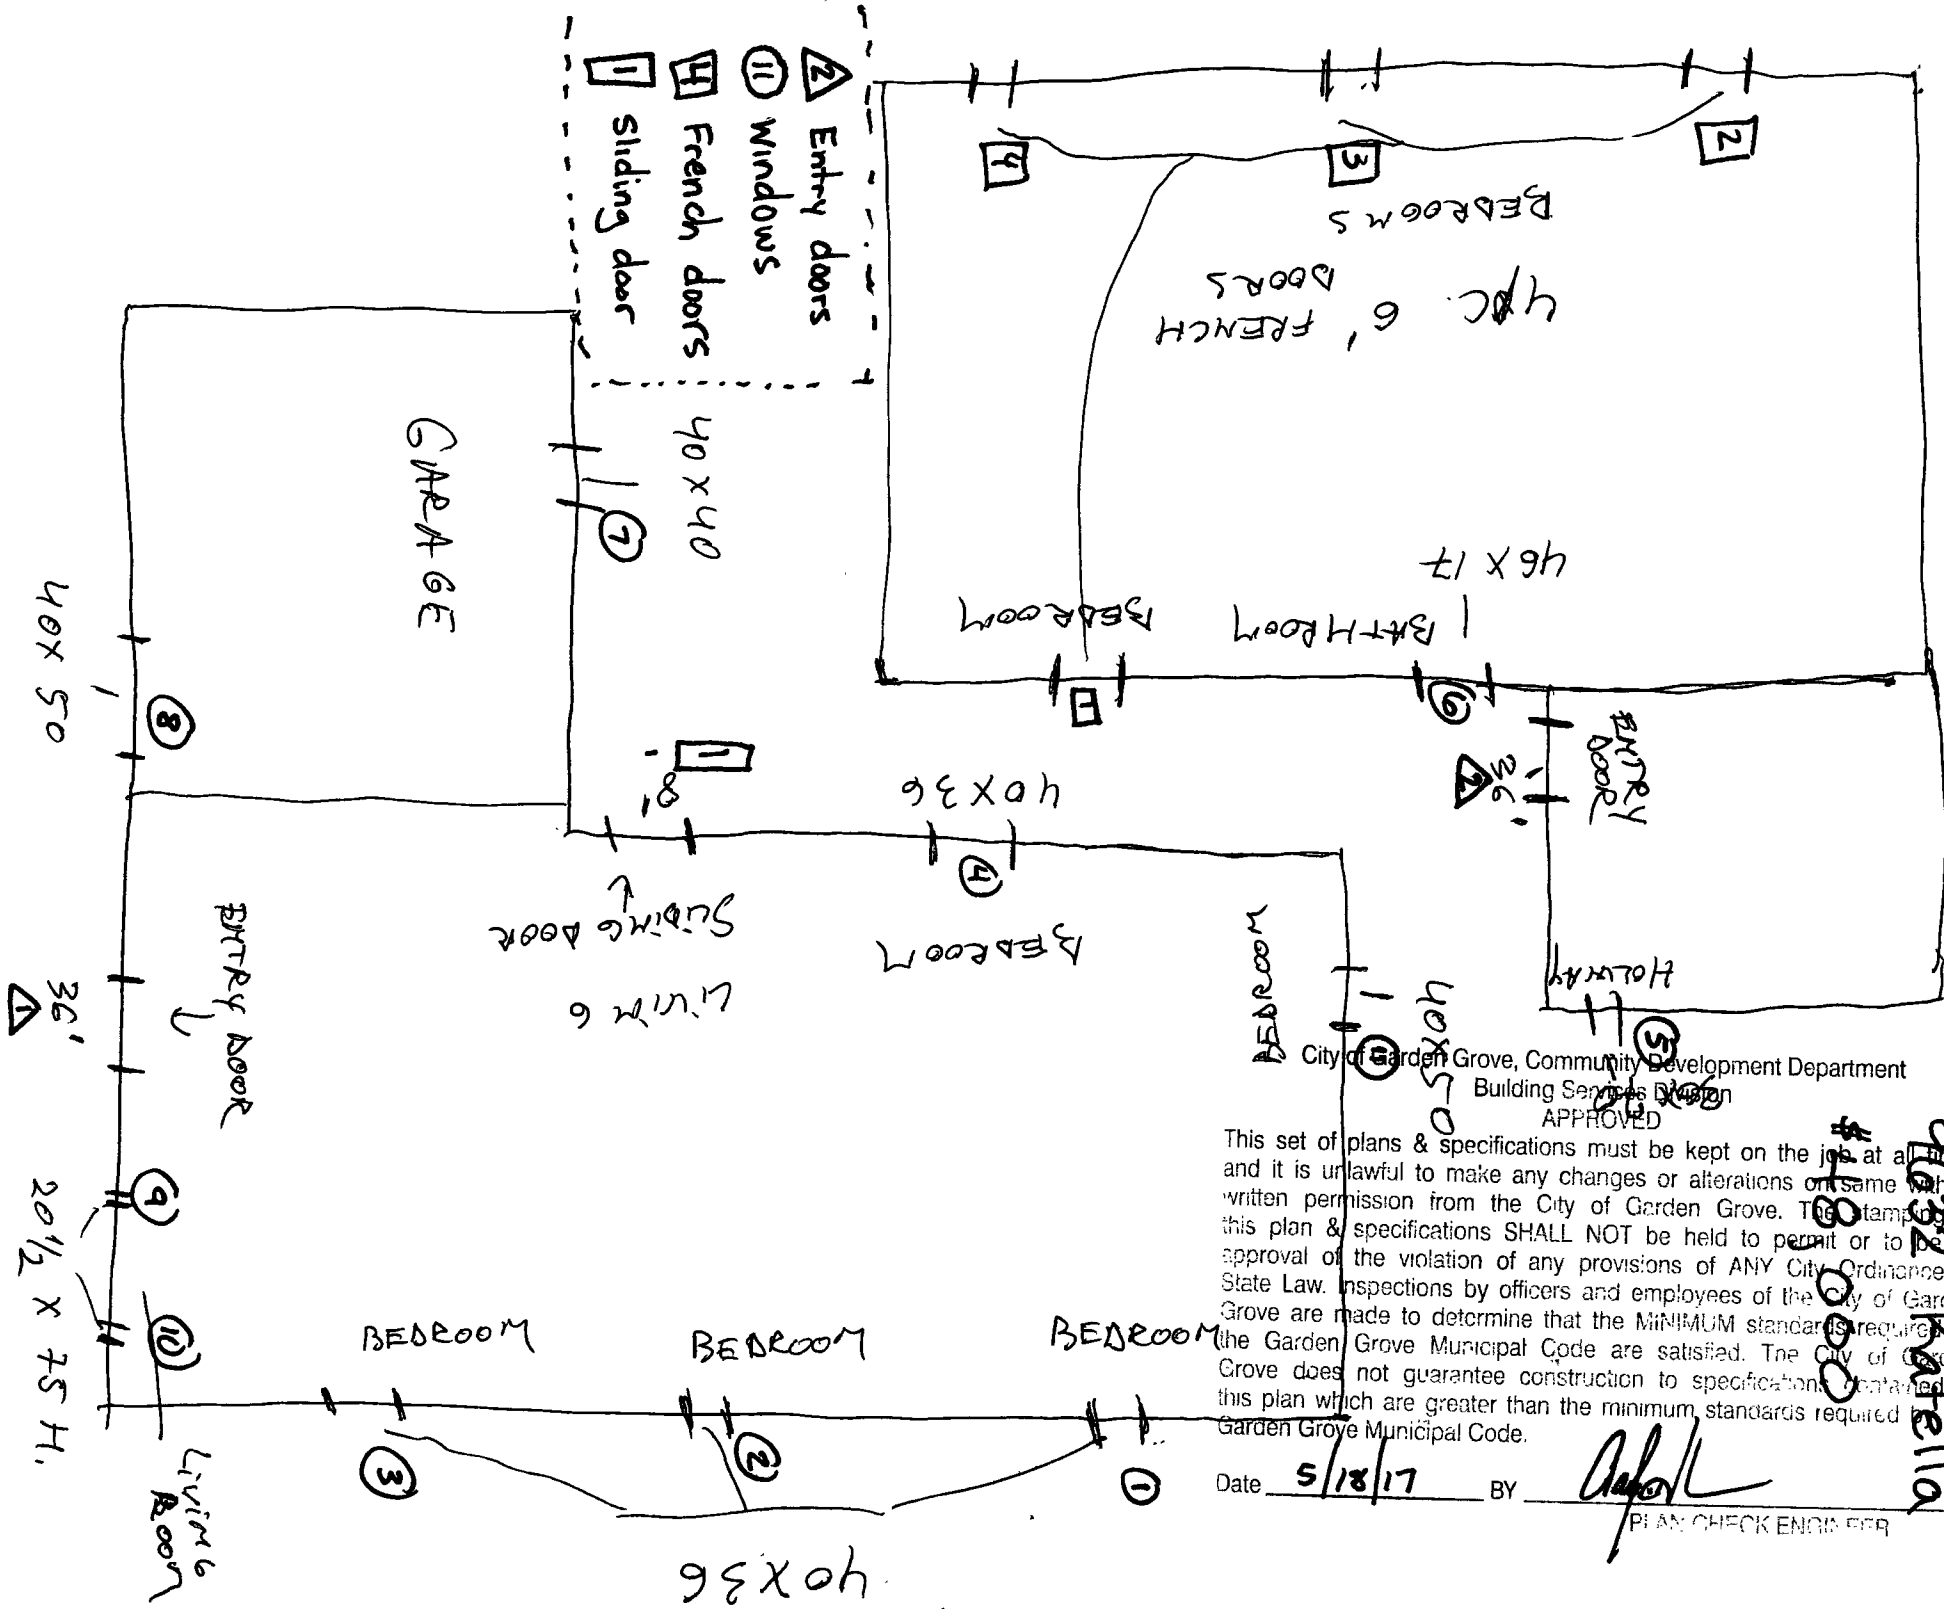 △2 Entry doors
⑪ Windows
4 French doors
1 Sliding door
4
3
2
BEDROOMS
4PC. 6' FRENCH
DOORS
GARAGE
40 X 40
7
46 X 17
1 BATHROOM
BEDROOM
1
6
ENTRY
DOOR
36'
2
40 X 50
8
1
8'
40 X 36
4
BEDROOM
SLIDING DOOR
LIVING
BEDROOM
40 X 50
11
HOLWAY
5
ENTRY DOOR
36'
1
9
20 1/2 X 75 H.
10
LIVING
ROOM
BEDROOM
BEDROOM
BEDROOM
3
2
1
40 X 36
$18,000
City of Garden Grove, Community Development Department
Building Services Division
APPROVED
This set of plans & specifications must be kept on the job at all
and it is unlawful to make any changes or alterations on same
written permission from the City of Garden Grove. The stamping
this plan & specifications SHALL NOT be held to permit or to be
approval of the violation of any provisions of ANY City Ordinance
State Law. Inspections by officers and employees of the City of
Grove are made to determine that the MINIMUM standards
the Garden Grove Municipal Code are satisfied. The City of
Grove does not guarantee construction to specifications contained
this plan which are greater than the minimum standards required
Garden Grove Municipal Code.
Date 5/18/17 BY
PLAN CHECK ENGINEER